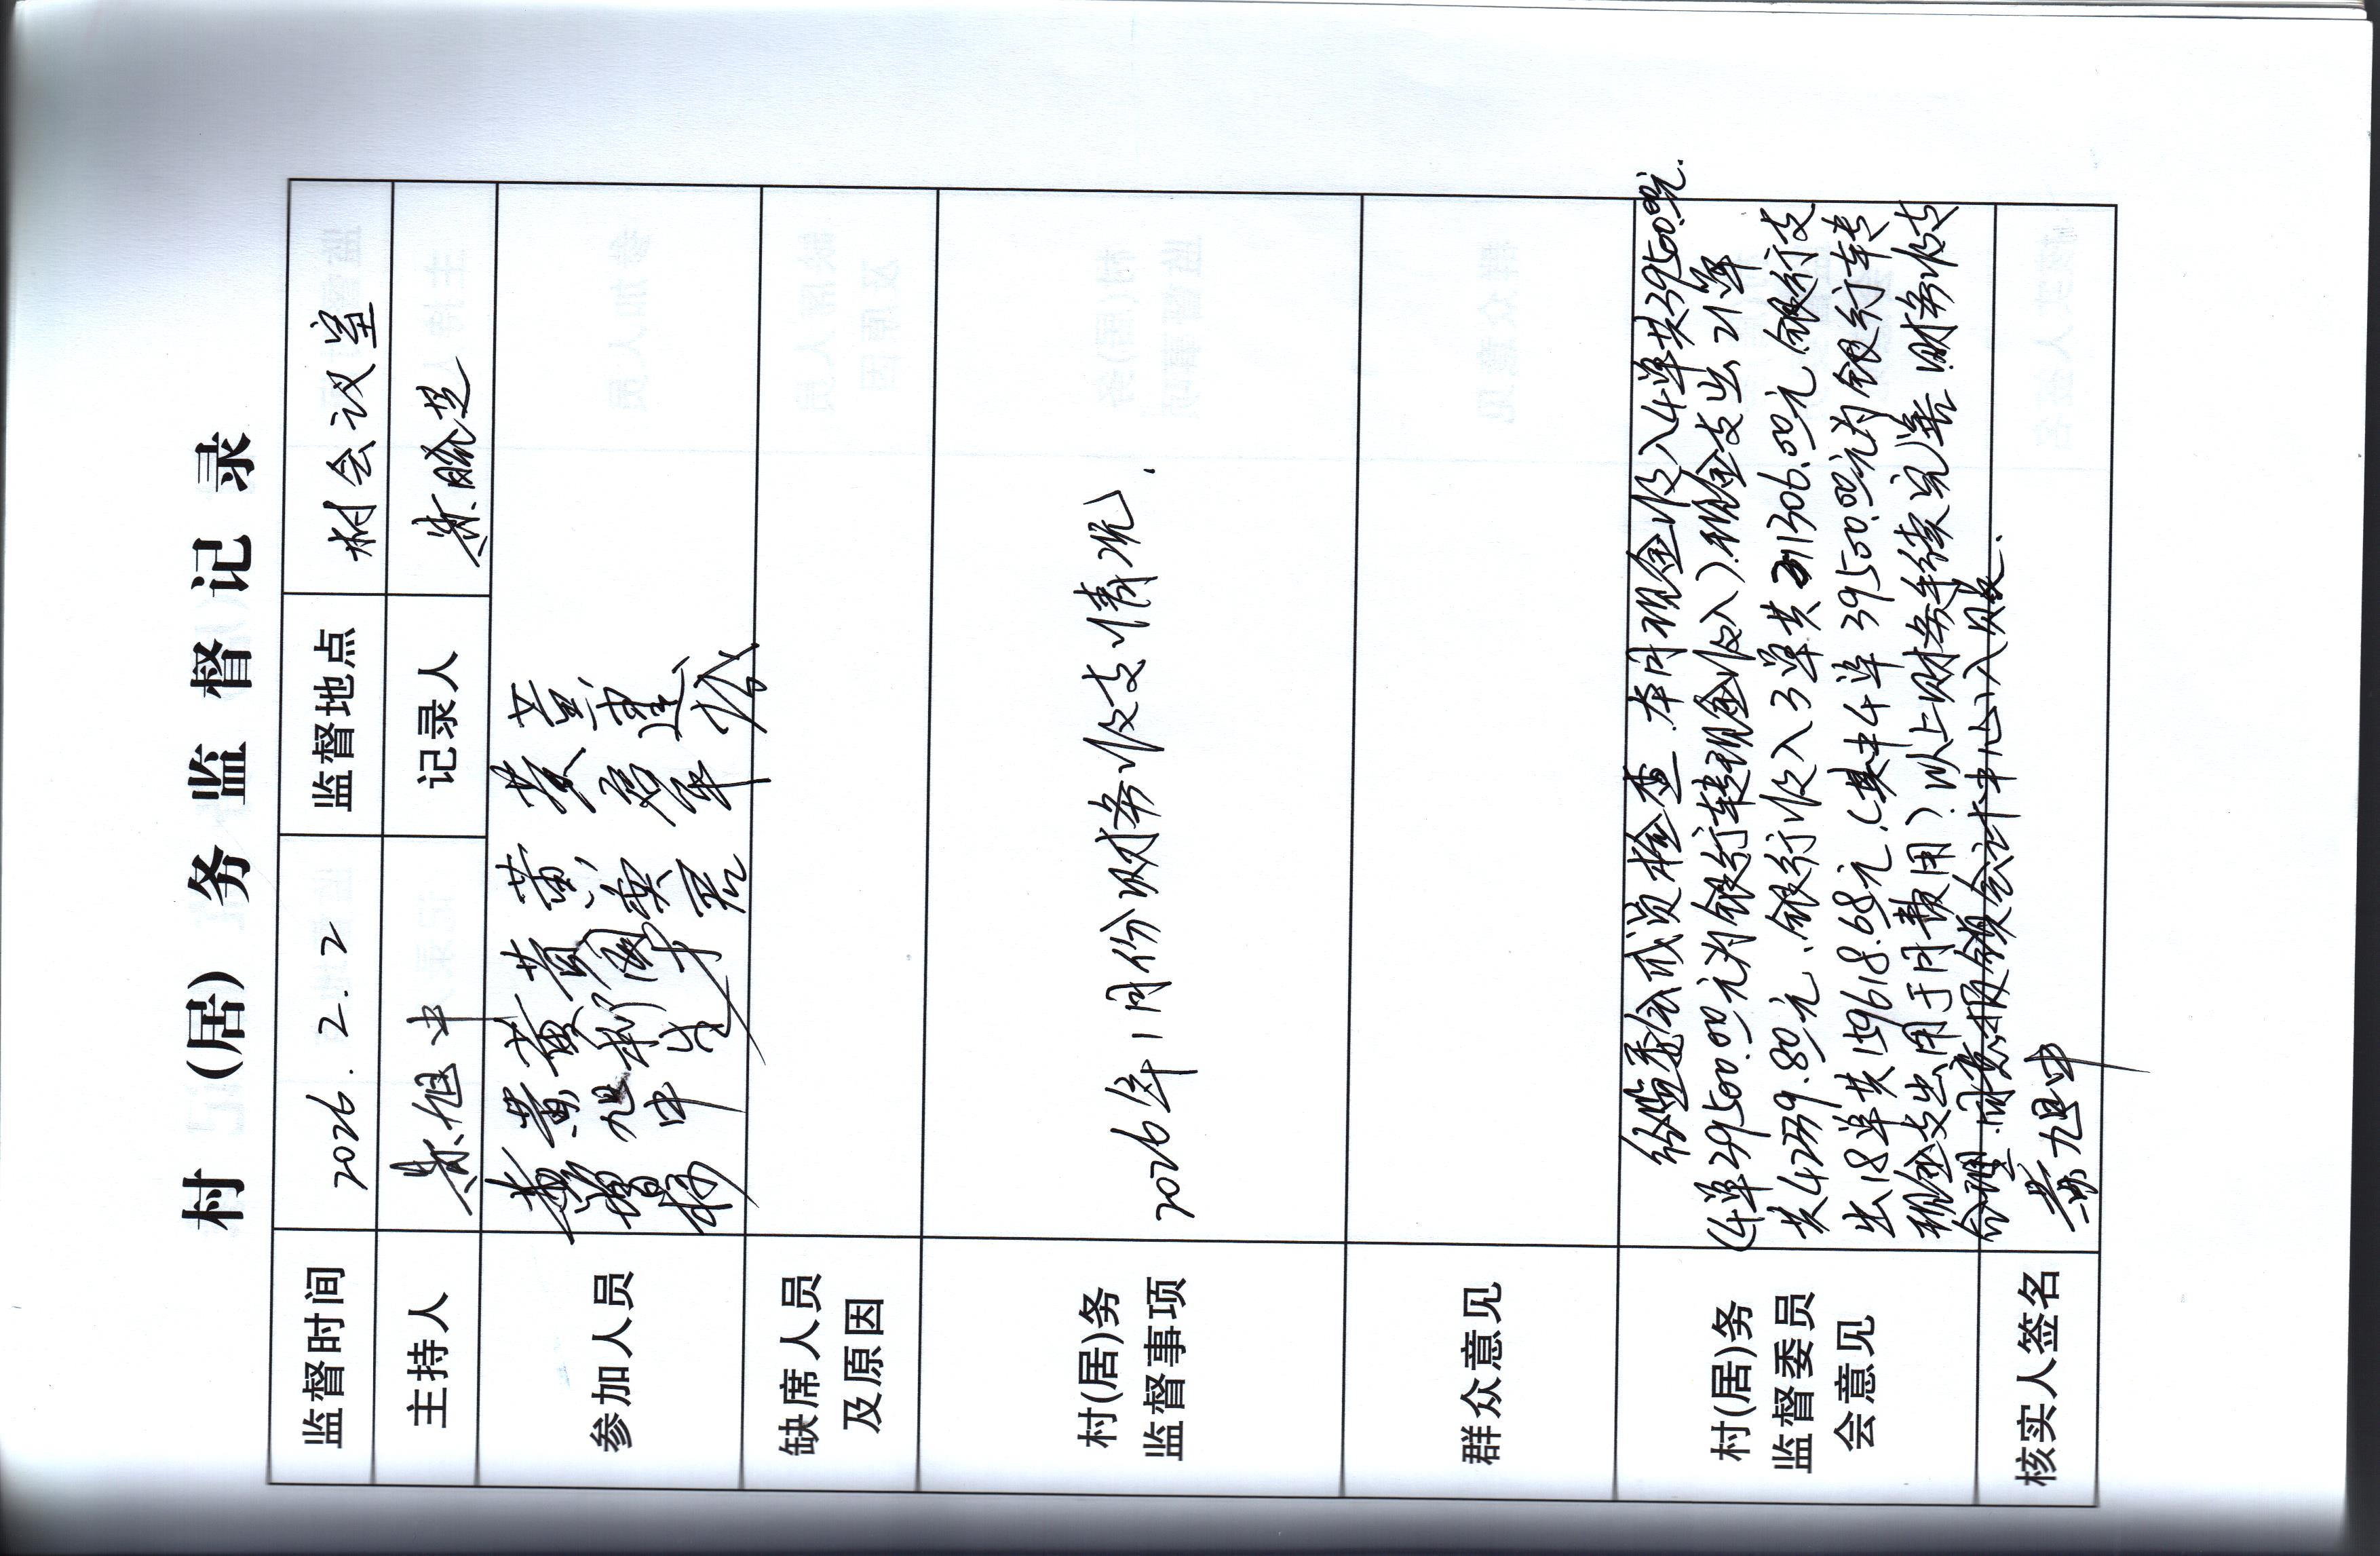 村(居)务监督记录
监督时间 2026.2.2 监督地点 村会议室
主持人 黄旭中 记录人
参加人员
缺席人员及原因
村(居)务监督事项 2026年1月份财务收支情况.
群众意见
村(居)务监督委员会意见
经监委会成员检查.本月现金收入4单共39500.00元.
(4单39500.00元为银行转现金收入).现金支出21单
共42739.80元、银行收入3单共21306.00元.银行支
出18单共159618.68元.(其中4单39500.00元为银行转
现金支出用于日常费用).以上财务手续完善.财务收支
合理.同意报镇会计中心入账.
核实人签名 黄旭中